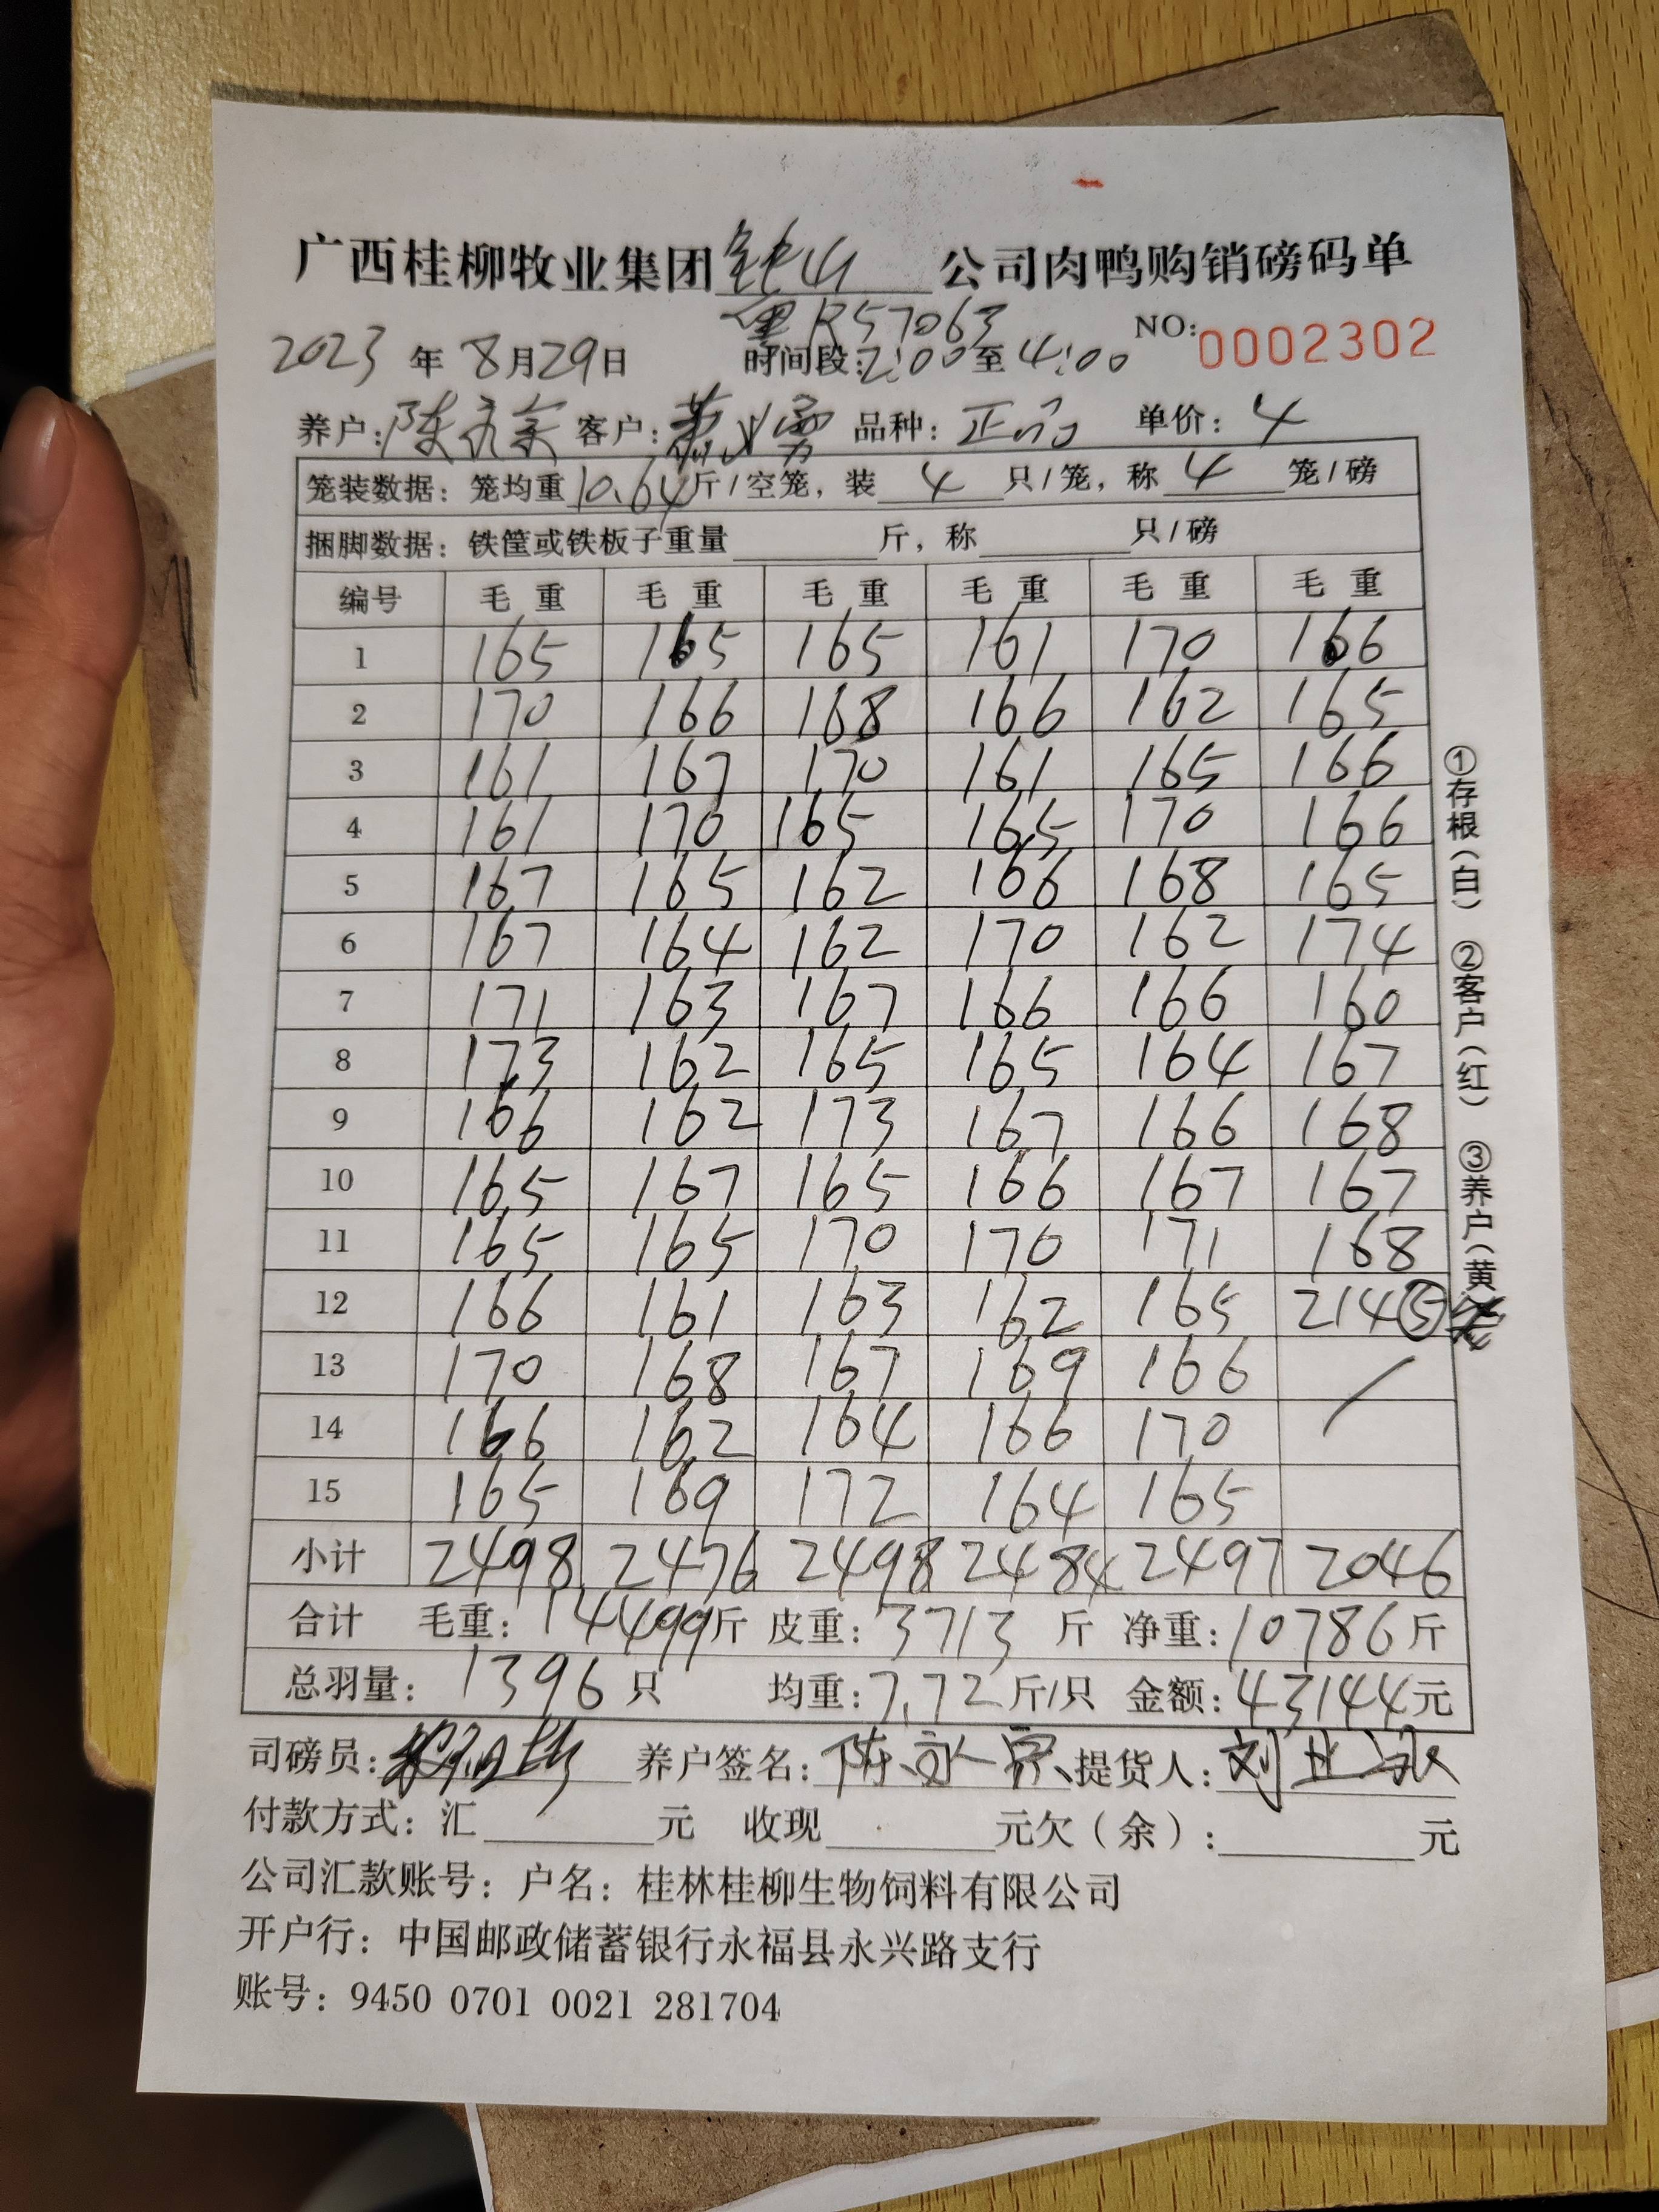 广西桂柳牧业集团 钦山 公司肉鸭购销磅码单
R57063
NO:0002302
2023 年 8月29日 时间段:2:00至4:00
养户: 陈 客户: 品种: 正品 单价: 4
笼装数据: 笼均重10.64斤/空笼, 装 4 只/笼, 称 4 笼/磅
捆脚数据: 铁筐或铁板子重量 斤, 称 只/磅
编号 毛重 毛重 毛重 毛重 毛重 毛重
1 165 165 165 161 170 166
2 170 166 168 166 162 165
3 161 167 170 161 165 166
4 161 170 165 165 170 166
5 167 165 162 166 168 165
6 167 164 162 170 162 174
7 171 163 167 166 166 160
8 173 162 165 165 164 167
9 166 162 173 167 166 168
10 165 167 165 166 167 167
11 165 165 170 170 171 168
12 166 161 163 162 165 214⑤笼
13 170 168 167 169 166
14 166 162 164 166 170
15 165 169 172 164 165
小计 2498 2476 2498 2484 2497 2046
合计 毛重: 14499斤 皮重: 3713 斤 净重: 10786斤
总羽量: 1396 只 均重: 7.72斤/只 金额: 43144元
司磅员: 养户签名: 陈 提货人: 刘
付款方式: 汇 元 收现 元欠(余): 元
公司汇款账号: 户名: 桂林桂柳生物饲料有限公司
开户行: 中国邮政储蓄银行永福县永兴路支行
账号: 9450 0701 0021 281704
①存根(白) ②客户(红) ③养户(黄